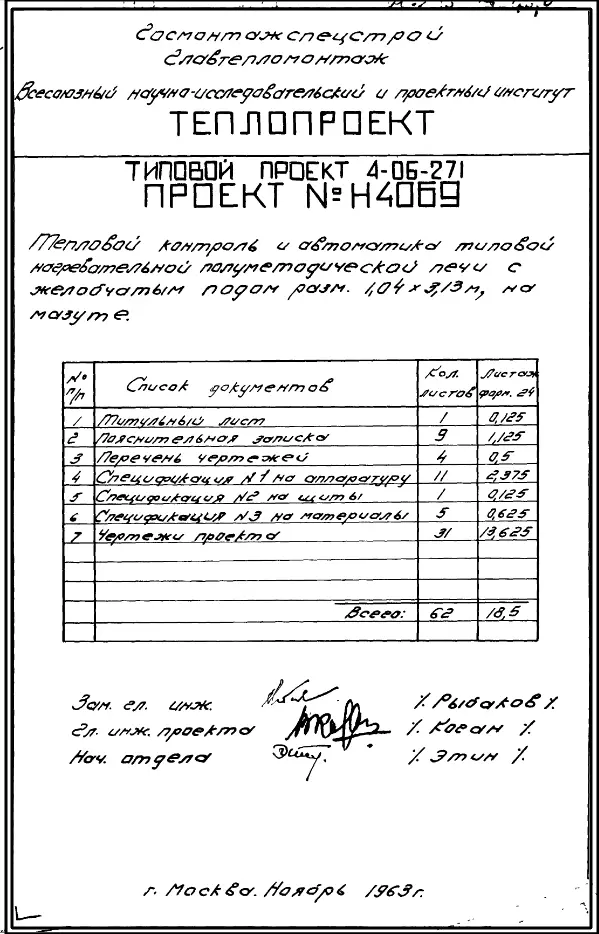 Госмонтажспецстрой
Главтепломонтаж
Всесоюзный научно-исследовательский и проектный институт
ТЕПЛОПРОЕКТ
ТИПОВОЙ ПРОЕКТ 4-06-271
ПРОЕКТ №Н4069
Тепловой контроль и автоматика типовой
нагревательной полуметодической печи с
желобчатым подом разм. 1,04 × 3,13 м, на
мазуте.
№ п/п Список документов Кол. листов Листаж форм. 24
1 Титульный лист 1 0,125
2 Пояснительная записка 9 1,125
3 Перечень чертежей 4 0,5
4 Спецификация N1 на аппаратуру 11 2,375
5 Спецификация N2 на щиты 1 0,125
6 Спецификация N3 на материалы 5 0,625
7 Чертежи проекта 31 13,625
Всего: 62 18,5
Зам. гл. инж. /. Рыбаков /.
Гл. инж. проекта /. Коган /.
Нач. отдела /. Этин /.
г. Москва. Ноябрь 1963 г.